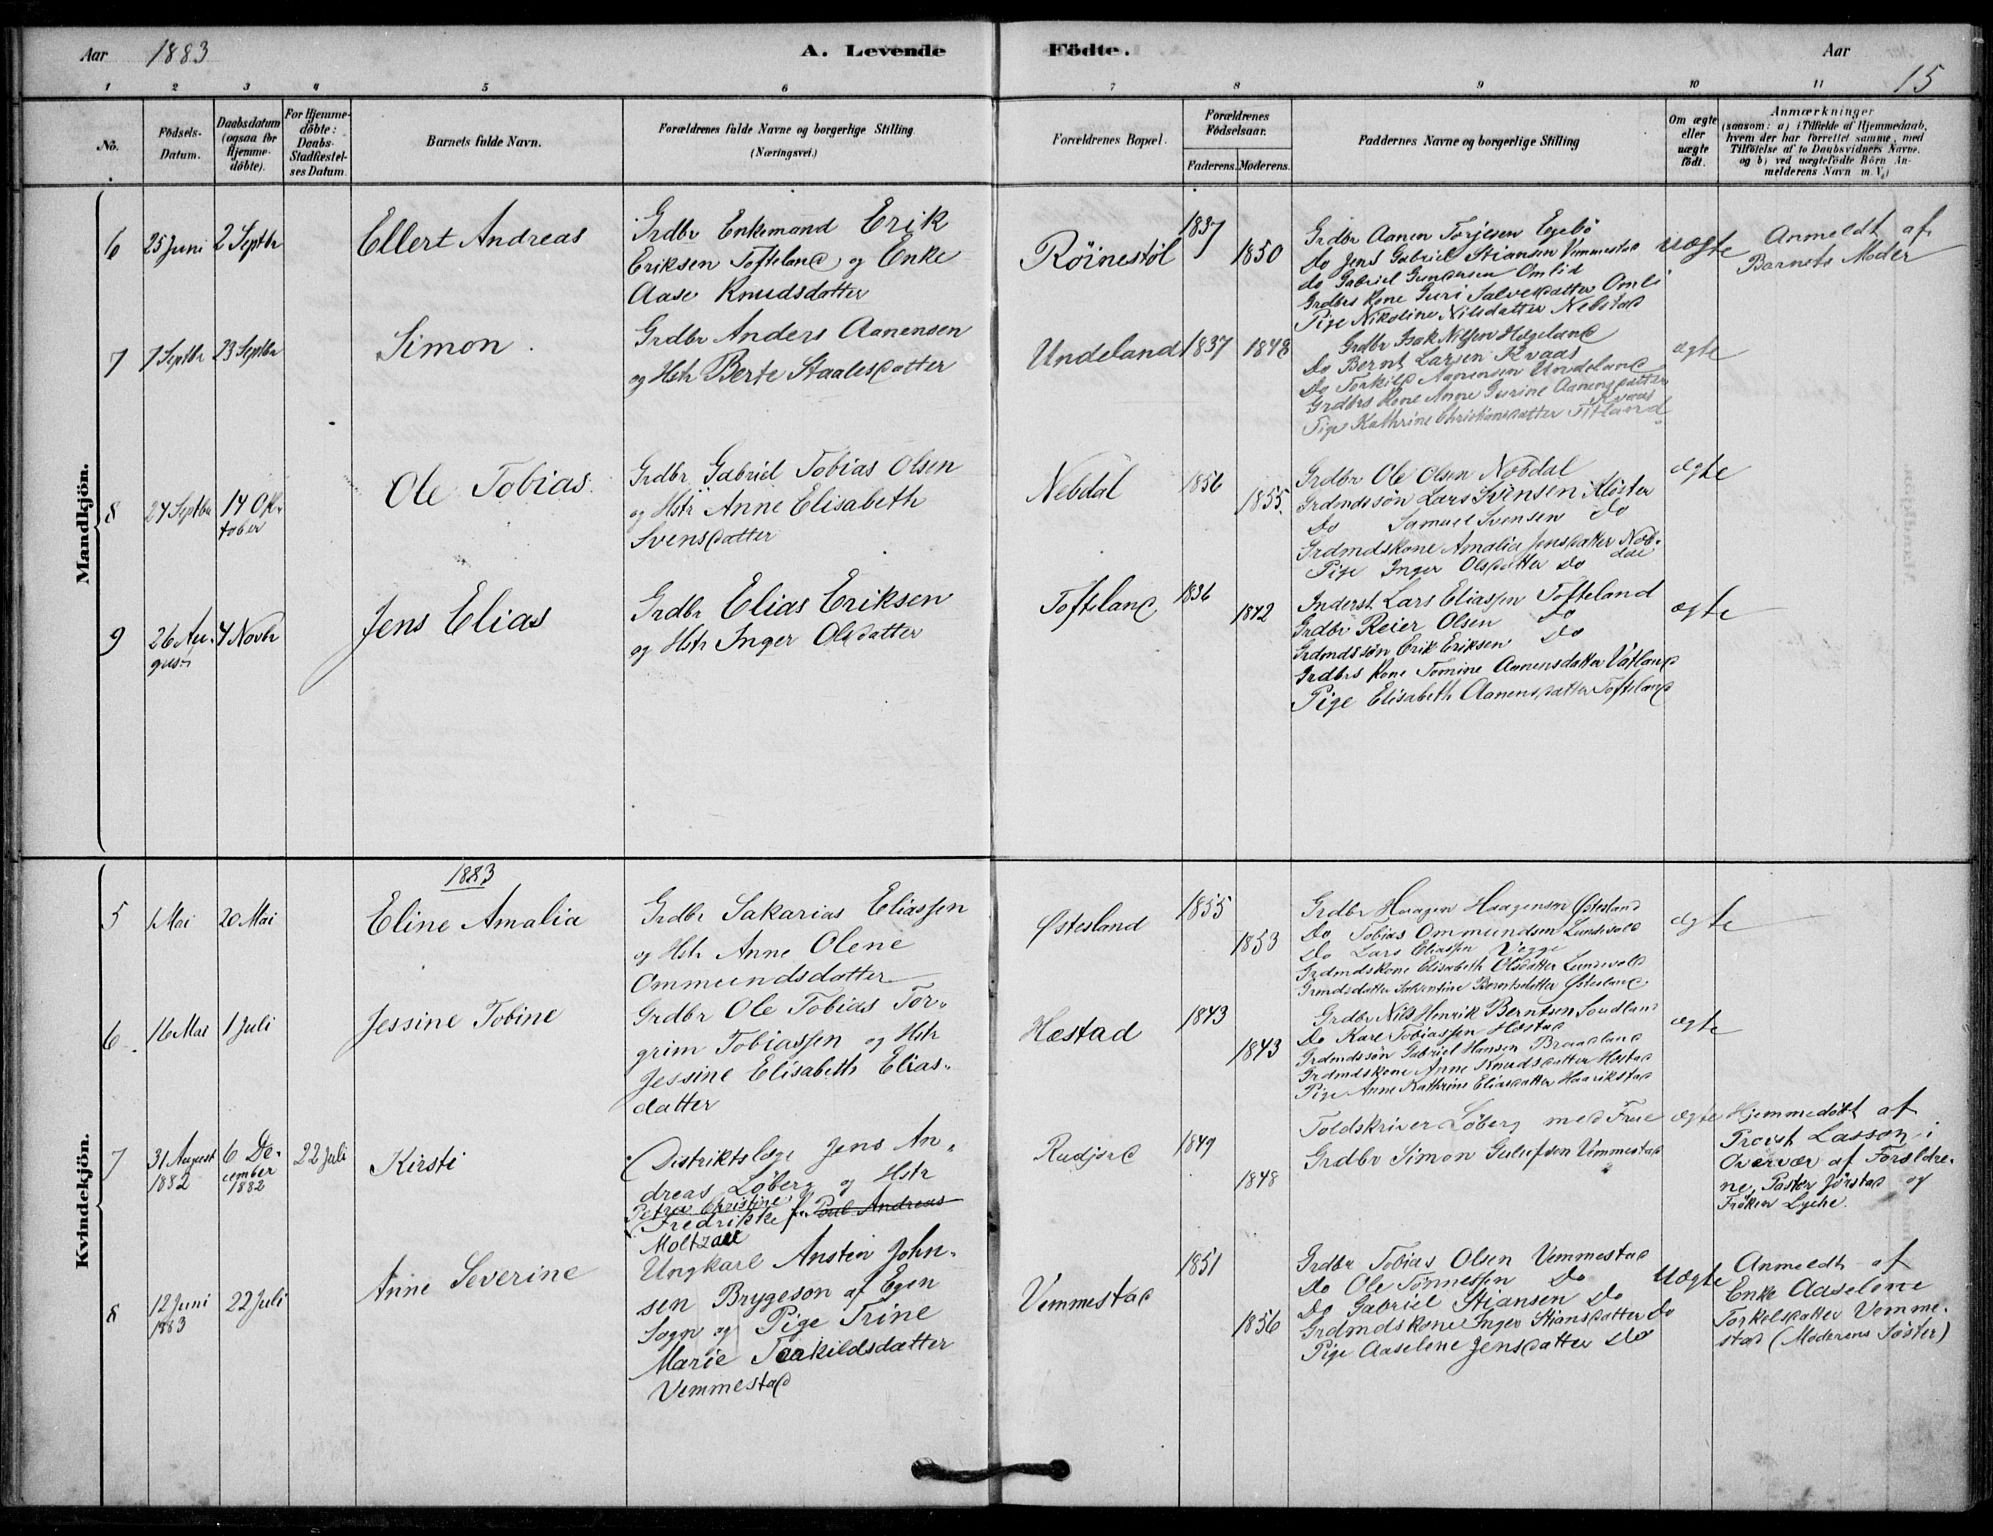 Aar 1883
A. Levende Födte.
Aar
15
1 2 3 4 5 6 7 8 9 10 11
No.
Födsels-Datum.
Daabsdatum (ogsaa for Hjemme-döbte).
For Hjemme-döbte: Daabs-Stadfæstel-ses Datum.
Barnets fulde Navn.
Forældrenes fulde Navne og borgerlige Stilling (Næringsvei.)
Forældrenes Bopæl.
Forældrenes Födselsaar.
Faderens. Moderens.
Faddernes Navne og borgerlige Stilling
Om ægte eller uægte födt.
Anmærkninger
(saasom: a) i Tilfælde af Hjemmedaab,
hvem der har forrettet samme, med
Tilföielse af to Daabsvidners Navne,
og b) ved uægtefödte Börn An-
melderens Navn m. V.)
Mandkjön.
6 25 Juni 2 Septbr
Ellert Andreas
Grdbr Enkemand Erik
Eriksen Tofteland og Enke
Aase Knudsdatter
Röinestöl
1837
1850
Grdbr Aanen Torjesen Egebö
Do Jens Gabriel Stiansen Vemmestad
do Gabriel Gundersen Omlid
Grdbrs Kone Guri Salvesdatter Omli
Pige Nikoline Nilsdatter Nebstad
uægte
Anmeldt af
Barnets Moder
7 7 Septbr 23 Septbr
Simon.
Grdbr Anders Aanensen
og Hstr Berte Staalesdatter
Undeland
1837 1848
Grdbr Isak Nilsen Hægeland
Do Bernt Larsen Kvaas
Do Torkild Aanensen Undeland
Grdbrs Kone Anne Gurine Aanensdatter
Kvaas
Pige Kathrine Christiansdatter Titland
ægte
8 24 Septbr 14 Ok-
tober
Ole Tobias.
Grdbr Gabriel Tobias Olsen
og Hstr Anne Elisabeth
Svensdatter
Nebdal
1856
1855.
Grdbr Ole Olsen Nobdal
Grdmdssön Lars Svensen Klöster
Do Samuel Svensen do
Grdmdskone Amalia Jensdatter Nob-
dal
Pige Inger Olsdatter do
ægte
9 26 Au-
gust
4 Novbr
Jens Elias
Grdbr Elias Eriksen
og Hstr Inger Olsdatter
Tofteland
1836
1842
Inderst Lars Eliassen Tofteland
Grdbr Reier Olsen Do
Grdmdssön Erik Eriksen Do
Grdbrs Kone Tomine Aanensdatter Vatland
Pige Elisabeth Aanensdatter Tofteland
ægte
Kvindekjön.
1883
5 1 Mai 20 Mai
Eline Amalia
Grdbr Sakarias Eliassen
og Hstr Anne Olene
Ommundsdatter
Østesland
1855
1853
Grdbr Haagen Haagensen Østesland
Do Tobias Ommundsen Lundevold
Do Lars Eliassen Vegge
Grdmdskone Elisabeth Olsdatter Lundevold
Grmdsdatter Salentine Berntsdatter Østesland
ægte
6 16 Mai 1 Juli
Jessine Tobine
Grdbr Ole Tobias Tor-
grim Tobiassen og Hstr
Jessine Elisabeth Elias-
datter
Hæstad
1843
1843
Grdbr Nils Henrik Berntsen Soudland
Do Karl Tobiassen Hæstad
Grdmdssön Gabriel Hansen Braadland
Grdmdskone Anne Knudsdatter Hæstad
Pige Anne Kathrine Eliasdatter Haarikstad
ægte
7 31 August
1882
6 De-
cember
1882
22 Juli
Kirsti
Distriktslæge Jens An-
dreas Løberg og Hstr
Petra Christine
Fredrikke f. Poul Andreas
Moltzau
Rudjord
1849
1848
Toldskriver Løberg med Frue
Grdbr Simon Gulufsen Vemmestad
ægte
Hjemmedöbt af
Provst Lasson i
Overvær af Forældre-
ne, Pastor Jörstad og
Fröken Lyche.
8 12 Juni
1883
22 Juli
Anne Severine
Ungkarl Ansten John-
sen Brygeson af Egen
Sogn og Pige Trine
Marie Torkildsdatter
Vemmestad
Vemmestad
1851
1856
Grdbr Tobias Olsen Vemmestad
Do Ole Tönnessen Do
Do Gabriel Stiansen Do
Grdmdskone Inger Stiansdatter Do
Pige Aaselene Jensdatter Do
Uægte
Anmeldt af
Enke Aaselene
Torkelsdatter Vemme-
stad (Moderens Söster)